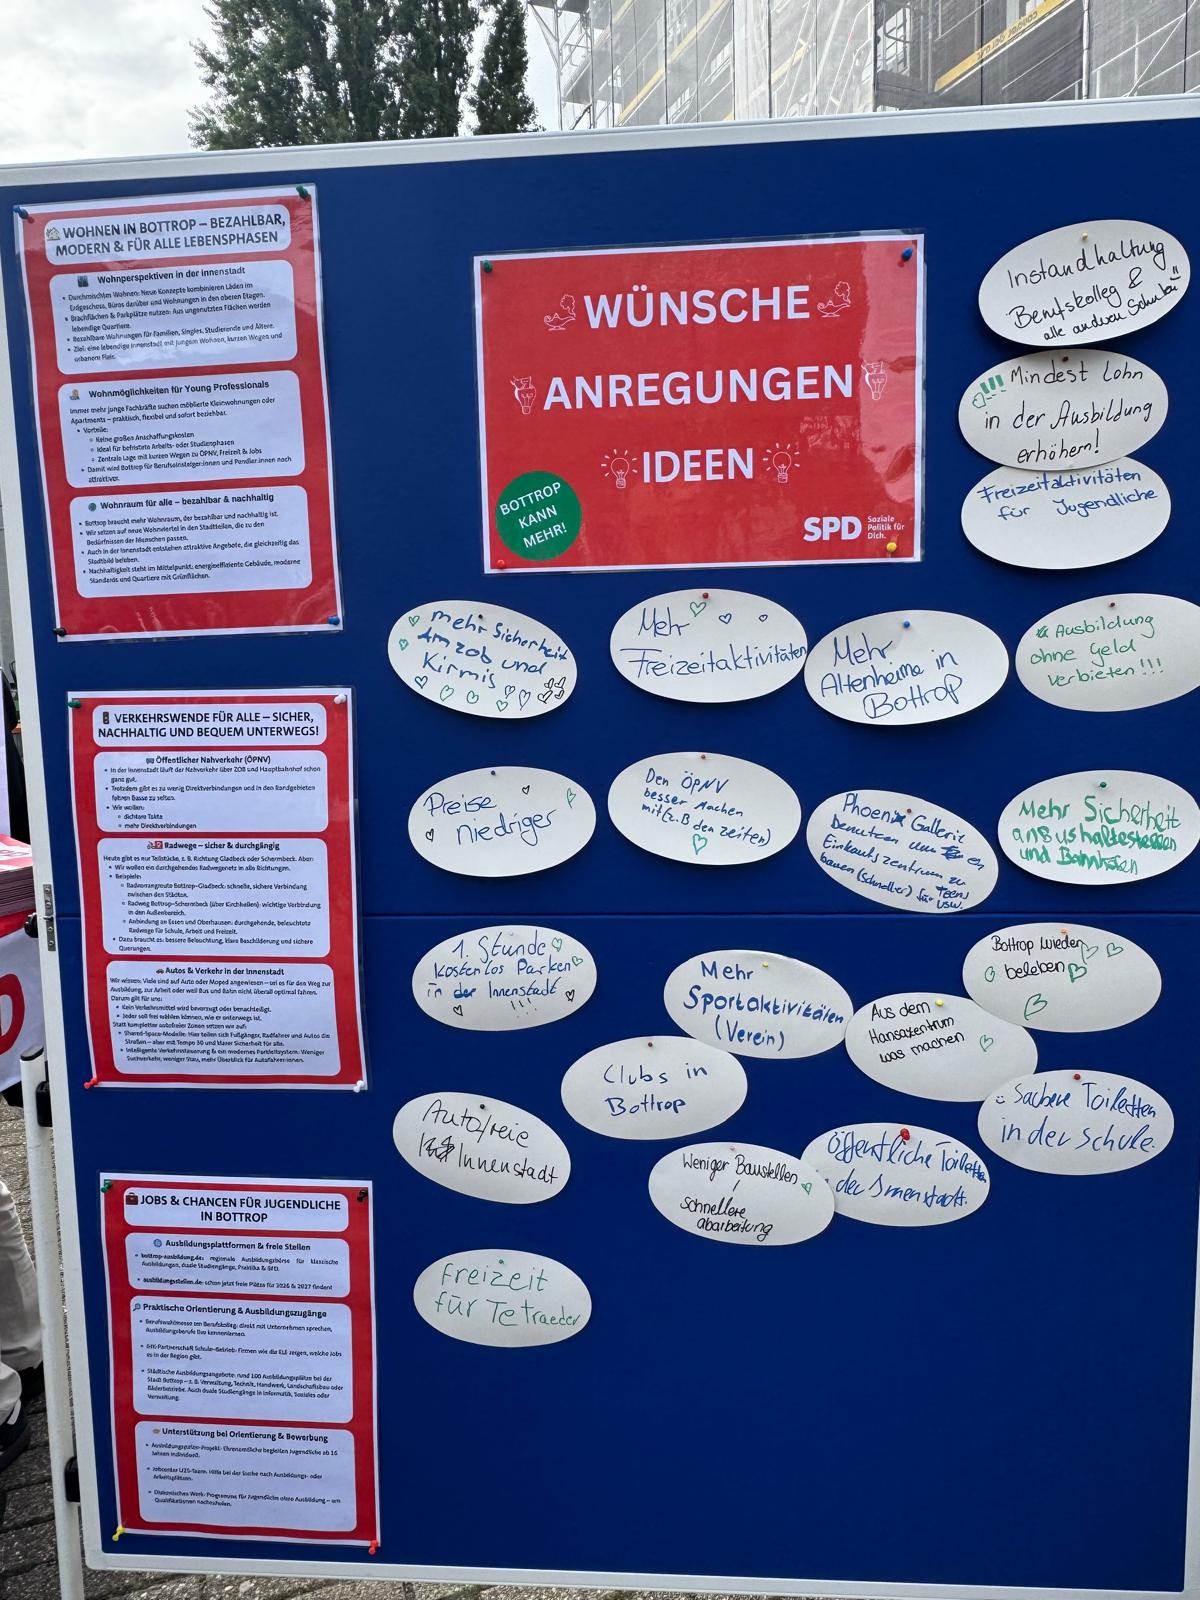 WOHNEN IN BOTTROP – BEZAHLBAR,
MODERN & FÜR ALLE LEBENSPHASEN
Wohnperspektiven in der Innenstadt
Durchmischtes Wohnen: Neue Konzepte kombinieren Läden im
Erdgeschoss, Büros darüber und Wohnungen in den oberen Etagen.
Brachflächen & Parkplätze nutzen: Aus ungenutzten Flächen werden
lebendige Quartiere.
Bezahlbare Wohnungen für Familien, Singles, Studierende und Ältere.
Ziel: eine lebendige Innenstadt mit jungem Wohnen, kurzen Wegen und
urbanem Flair.
Wohnmöglichkeiten für Young Professionals
Immer mehr junge Fachkräfte suchen möblierte Kleinwohnungen oder
Apartments – praktisch, flexibel und sofort beziehbar.
Vorteile:
Keine großen Anschaffungskosten
Ideal für befristete Arbeits- oder Studienphasen
Zentrale Lage mit kurzen Wegen zu ÖPNV, Freizeit & Jobs
Damit wird Bottrop für Berufseinsteiger:innen und Pendler:innen noch
attraktiver.
Wohnraum für alle – bezahlbar & nachhaltig
Bottrop braucht mehr Wohnraum, der bezahlbar und nachhaltig ist.
Wir setzen auf neue Wohnviertel in den Stadtteilen, die zu den
Bedürfnissen der Menschen passen.
Auch in der Innenstadt entstehen attraktive Angebote, die gleichzeitig das
Stadtbild beleben.
Nachhaltigkeit steht im Mittelpunkt: energieeffiziente Gebäude, moderne
Standards und Quartiere mit Grünflächen.
VERKEHRSWENDE FÜR ALLE – SICHER,
NACHHALTIG UND BEQUEM UNTERWEGS!
Öffentlicher Nahverkehr (ÖPNV)
In der Innenstadt läuft der Nahverkehr über ZOB und Hauptbahnhof schon
ganz gut.
Trotzdem gibt es zu wenig Direktverbindungen und in den Randgebieten
fahren Busse zu selten.
Wir wollen:
dichtere Takte
mehr Direktverbindungen
Radwege – sicher & durchgängig
Heute gibt es nur Teilstücke, z. B. Richtung Gladbeck oder Schermbeck. Aber:
Wir wollen ein durchgehendes Radwegenetz in alle Richtungen.
Beispiele:
Radvorrangroute Bottrop–Gladbeck: schnelle, sichere Verbindung
zwischen den Städten.
Radweg Bottrop–Schermbeck (über Kirchhellen): wichtige Verbindung
in den Außenbereich.
Anbindung an Essen und Oberhausen: durchgehende, beleuchtete
Radwege für Schule, Arbeit und Freizeit.
Dazu braucht es: bessere Beleuchtung, klare Beschilderung und sichere
Querungen.
Autos & Verkehr in der Innenstadt
Wir wissen: Viele sind auf Auto oder Moped angewiesen – sei es für den Weg zur
Ausbildung, zur Arbeit oder weil Bus und Bahn nicht überall optimal fahren.
Darum gilt für uns:
Kein Verkehrsmittel wird bevorzugt oder benachteiligt.
Jeder soll frei wählen können, wie er unterwegs ist.
Statt kompletter autofreier Zonen setzen wir auf:
Shared-Space-Modelle: Hier teilen sich Fußgänger, Radfahrer und Autos die
Straßen – aber mit Tempo 30 und klarer Sicherheit für alle.
Intelligente Verkehrssteuerung & ein modernes Parkleitsystem: Weniger
Suchverkehr, weniger Stau, mehr Überblick für Autofahrer:innen.
JOBS & CHANCEN FÜR JUGENDLICHE
IN BOTTROP
Ausbildungsplattformen & freie Stellen
bottrop-ausbildung.de: regionale Ausbildungsbörse für klassische
Ausbildungen, duale Studiengänge, Praktika & BFD.
ausbildungsstellen.de: schon jetzt freie Plätze für 2026 & 2027 finden!
Praktische Orientierung & Ausbildungszugänge
Berufswahlmesse am Berufskolleg: direkt mit Unternehmen sprechen,
Ausbildungsberufe live kennenlernen.
Partnerschaft Schule-Betrieb: Firmen wie die ELE zeigen, welche Jobs
es in der Region gibt.
Städtische Ausbildungsangebote: rund 100 Ausbildungsplätze bei der
Stadt Bottrop – z. B. Verwaltung, Technik, Handwerk, Landschaftsbau oder
Bäderbetriebe. Auch duale Studiengänge in Informatik, Soziales oder
Verwaltung.
Unterstützung bei Orientierung & Bewerbung
Ausbildungspaten-Projekt: Ehrenamtliche begleiten Jugendliche ab 16
Jahren individuell.
Jobcenter U25-Team: Hilfe bei der Suche nach Ausbildungs- oder
Arbeitsplätzen.
Diakonisches Werk: Programme für Jugendliche ohne Ausbildung – um
Qualifikationen nachzuholen.
WÜNSCHE
ANREGUNGEN
IDEEN
BOTTROP
KANN
MEHR!
SPD
Soziale
Politik für
Dich.
Instandhaltung
Berufskolleg &
alle anderen Schulen
!!! Mindest lohn
in der Ausbildung
erhöhen!
Freizeitaktivitäten
für Jugendliche
mehr Sicherheit
Am zob und
Kirmis
Mehr
Freizeitaktivitäten
Mehr
Altenheime in
Bottrop
Ausbildung
ohne Geld
verbieten !!!
Preise
niedriger
Den ÖPNV
besser Machen
mit (z.B den zeiten)
Phoenix Gallerie
Benutzen um ein
Einkaufszentrum zu
bauen (Schneller) für Teens
usw.
Mehr Sicherheit
an Bushaltestellen
und Bahnhöfen
1. Stunde
kostenlos Parken
in der Innenstadt
!!!
Mehr
Sportaktivitäten
(Verein)
Bottrop wieder
beleben
Aus dem
Hansazentrum
was machen
Clubs in
Bottrop
Autofreie
Innenstadt
Saubere Toiletten
in der Schule.
Öffentliche Toiletten
der Innenstadt.
Weniger Baustellen
/
schnellere
abarbeitung
Freizeit
für Tetraeder